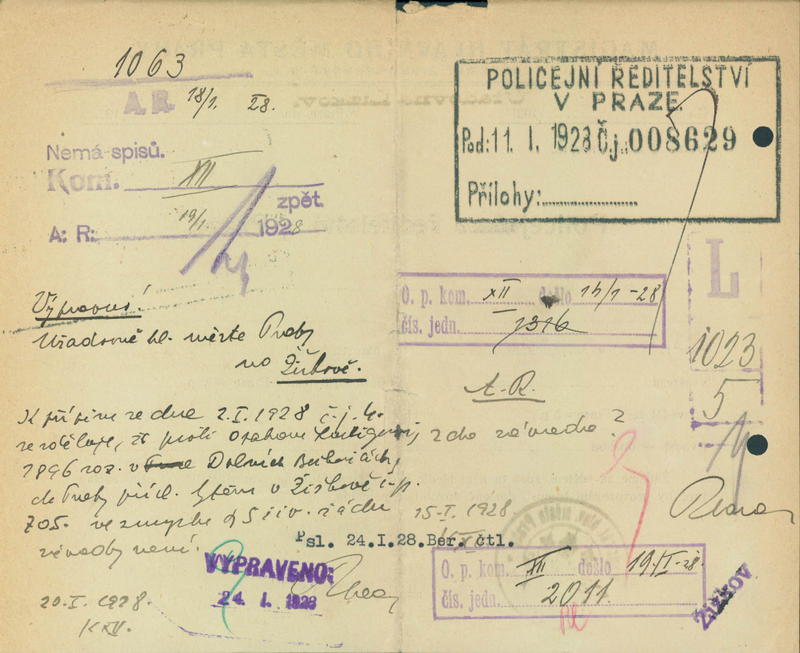 1063
A. R. 18/1. 28.
Nemá spisů.
Kom. XII
zpět.
A: R: 19/1. 1928
Výpravně!
Úřadovně hl. města Prahy
na Žižkově.
K přípisu ze dne 2.I.1928 č.j. 4.
se sděluje, že proti
1896 roz. v Dolních
do Prahy přísl. bytem v Žižkově č.p.
705. ve smyslu § 5 řádu
závady není.
20.I.1928.
VYPRAVENO:
24. I. 1928
POLICEJNÍ ŘEDITELSTVÍ
V PRAZE
Pod: 11. I. 1928 Č.j. 008629
Přílohy:
O. p. kom. XII došlo 14/1-28
čís. jedn. 1316
L
1023
5
A.R.
zda závada?
15-I.1928.
Psl. 24.I.28.Ber.čtl.
O. p. kom. XII došlo 19/I-28.
čís. jedn. 2011.
Žižkov